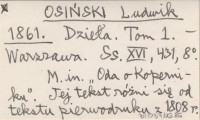 OSIŃSKI Ludwik
1861. Dzieła. Tom 1. –
Warszawa. Ss. XVI, 431, 8°.
M. in. „Oda o Koperni-
ku". Jej tekst różni się od
tekstu pierwodruku z 1808 r.